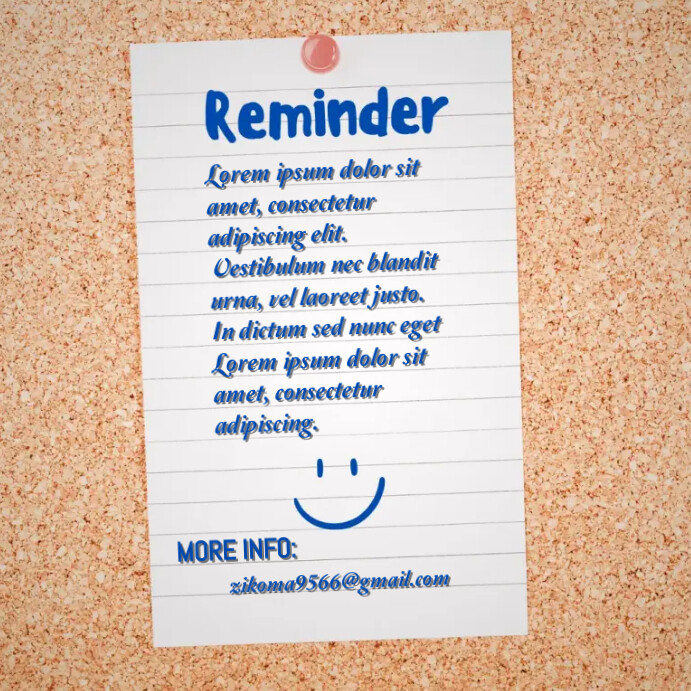 Reminder
Lorem ipsum dolor sit
amet, consectetur
adipiscing elit.
Vestibulum nec blandit
urna, vel laoreet justo.
In dictum sed nunc eget
Lorem ipsum dolor sit
amet, consectetur
adipiscing.
MORE INFO:
zikoma9566@gmail.com